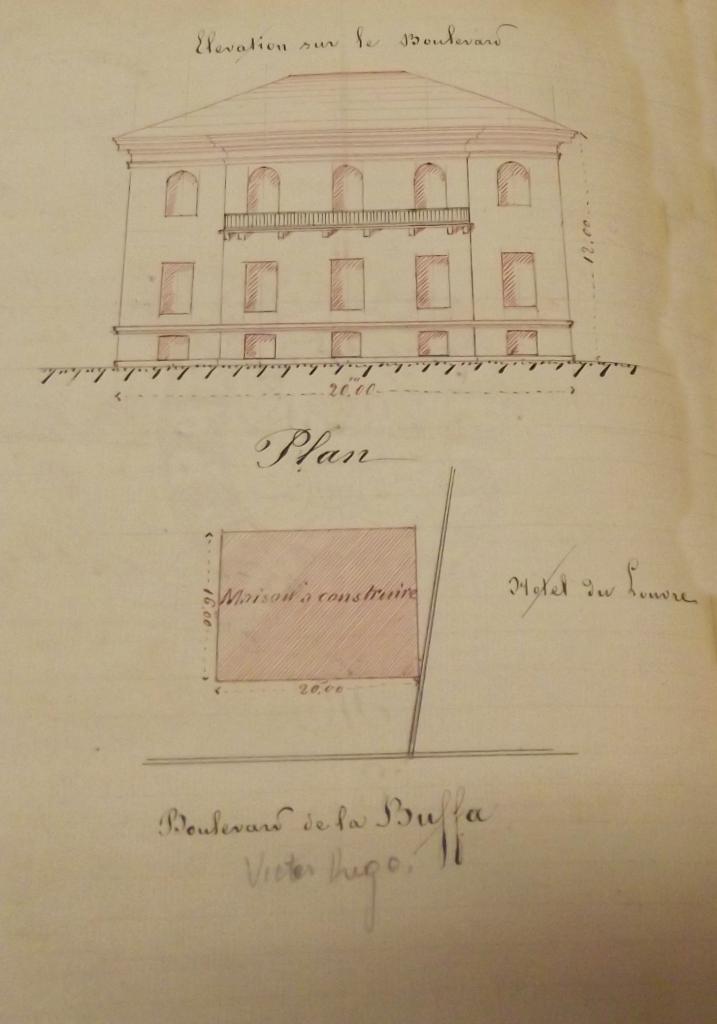 Elevation sur le Boulevard
12.00
20.00
Plan
16.00
Maison à construire
Hotel du Louvre
20.00
Boulevard de la Buffa
Victor Hugo.